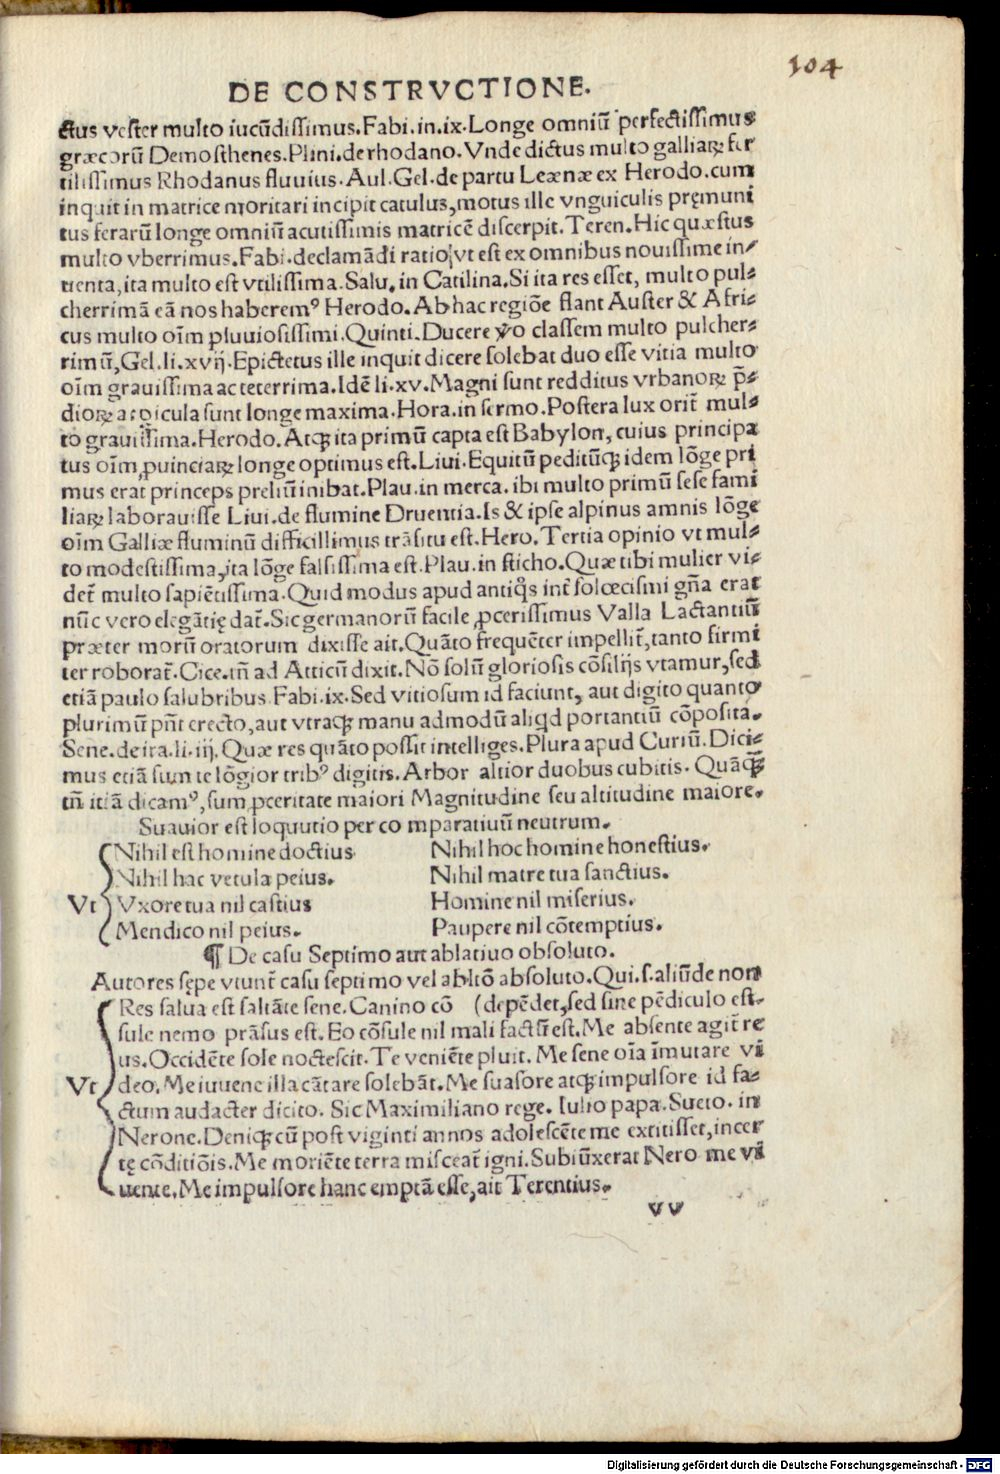 104
DE CONSTRVCTIONE.
ctus vester multo iucūdissimus. Fabi. in. ix. Longe omniū perfectissimus
græcorū Demosthenes. Plini. de rhodano. Vnde dictus multo galliaꝝ fer
tilissimus Rhodanus fluuius. Aul. Gel. de partu Leænæ ex Herodo. cum
inquit in matrice moritari incipit catulus, motus ille vnguiculis pręmuni
tus ferarū longe omniū acutissimis matricē discerpit. Teren. Hic quæstus
multo vberrimus. Fabi. declamādi ratio, vt est ex omnibus nouissime in⸗
uenta, ita multo est vtilissima. Salu. in Catilina. Si ita res esset, multo pul⸗
cherrimā eā nos haberemꝰ Herodo. Ab hac regiōe flant Auster & Afri⸗
cus multo oīm pluuiosissimi. Quinti. Ducere ꝟo classem multo pulcher⸗
rimū, Gel. li. xvij. Epictetus ille inquit dicere solebat duo esse vitia multo
oīm grauissima ac teterrima. Idē li. xv. Magni sunt redditus vrbanoꝝ p̄⸗
dioꝝ a picula sunt longe maxima. Hora. in sermo. Postera lux orit̄ mul⸗
to grauissima. Herodo. Atqꝫ ita primū capta est Babylon, cuius principa
tus oīm ꝓuinciaꝝ longe optimus est. Liui. Equitū peditūqꝫ idem lōge pri
mus erat princeps preliū inibat. Plau. in merca. ibi multo primū sese fami
liaꝝ laborauisse Liui. de flumine Druentia. Is & ipse alpinus amnis lōge
oīm Galliæ fluminū difficillimus trāsitu est. Hero. Tertia opinio vt mul⸗
to modestissima, ita lōge falsissima est. Plau. in sticho. Quæ tibi mulier vi⸗
det̄ multo sapiētissima. Quid modus apud antiq̃s int̄ solœcismi gn̄a erat
nūc vero elegātię dat̄. Sic germanorū facile ꝓcerissimus Valla Lactantiū
præter morū oratorum dixisse ait. Quāto frequēter impellit̄, tanto firmi
ter roborat̄. Cice. tn̄ ad Atticū dixit. Nō solū gloriosis cōsilijs vtamur, sed
etiā paulo salubribus. Fabi. ix. Sed vitiosum id faciunt, aut digito quanto
plurimū pn̄t erecto, aut vtraqꝫ manu admodū aliq̇d portantiū cōposita.
Sene. de ira. li. iij. Quæ res quāto possit intelliges. Plura apud Curiū. Dici⸗
mus etiā sum te lōgior tribꝰ digitis. Arbor altior duobus cubitis. Quāqꝫ̄
tn̄ itiā dicamꝰ, sum ꝓceritate maiori Magnitudine seu altitudine maiore.
Suauior est loquutio per comparatiuū neutrum.
Vt
Nihil est homine doctius Nihil hoc homine honestius.
Nihil hac vetula peius. Nihil matre tua sanctius.
Vxore tua nil castius Homine nil miserius.
Mendico nil peius. Paupere nil cōtemptius.
¶ De casu Septimo aut ablatiuo obsoluto.
Autores sępe vtunt̄ casu septimo vel abltō absoluto. Qui. s. aliūde non
Vt
Res salua est saltāte sene. Canino cō (depēdet, sed sine pēdiculo est.
sule nemo prāsus est. Eo cōsule nil mali factū est. Me absente agit̄ re
us. Occidēte sole noctescit. Te veniēte pluit. Me sene oīa īmutare vi
deo. Me iuuene illa cātare solebāt. Me suasore atqꝫ impulsore id fa⸗
ctum audacter dicito. Sic Maximiliano rege. Iulio papa. Sueto. in
Nerone. Deniqꝫ cū post viginti annos adolescēte me extitisset, incer
tę cōditiōis. Me moriēte terra misceat̄ igni. Subiūxerat Nero me vi
uente. Me impulsore hanc emptā esse, ait Terentius.
v v
Digitalisierung gefördert durch die Deutsche Forschungsgemeinschaft - DFG